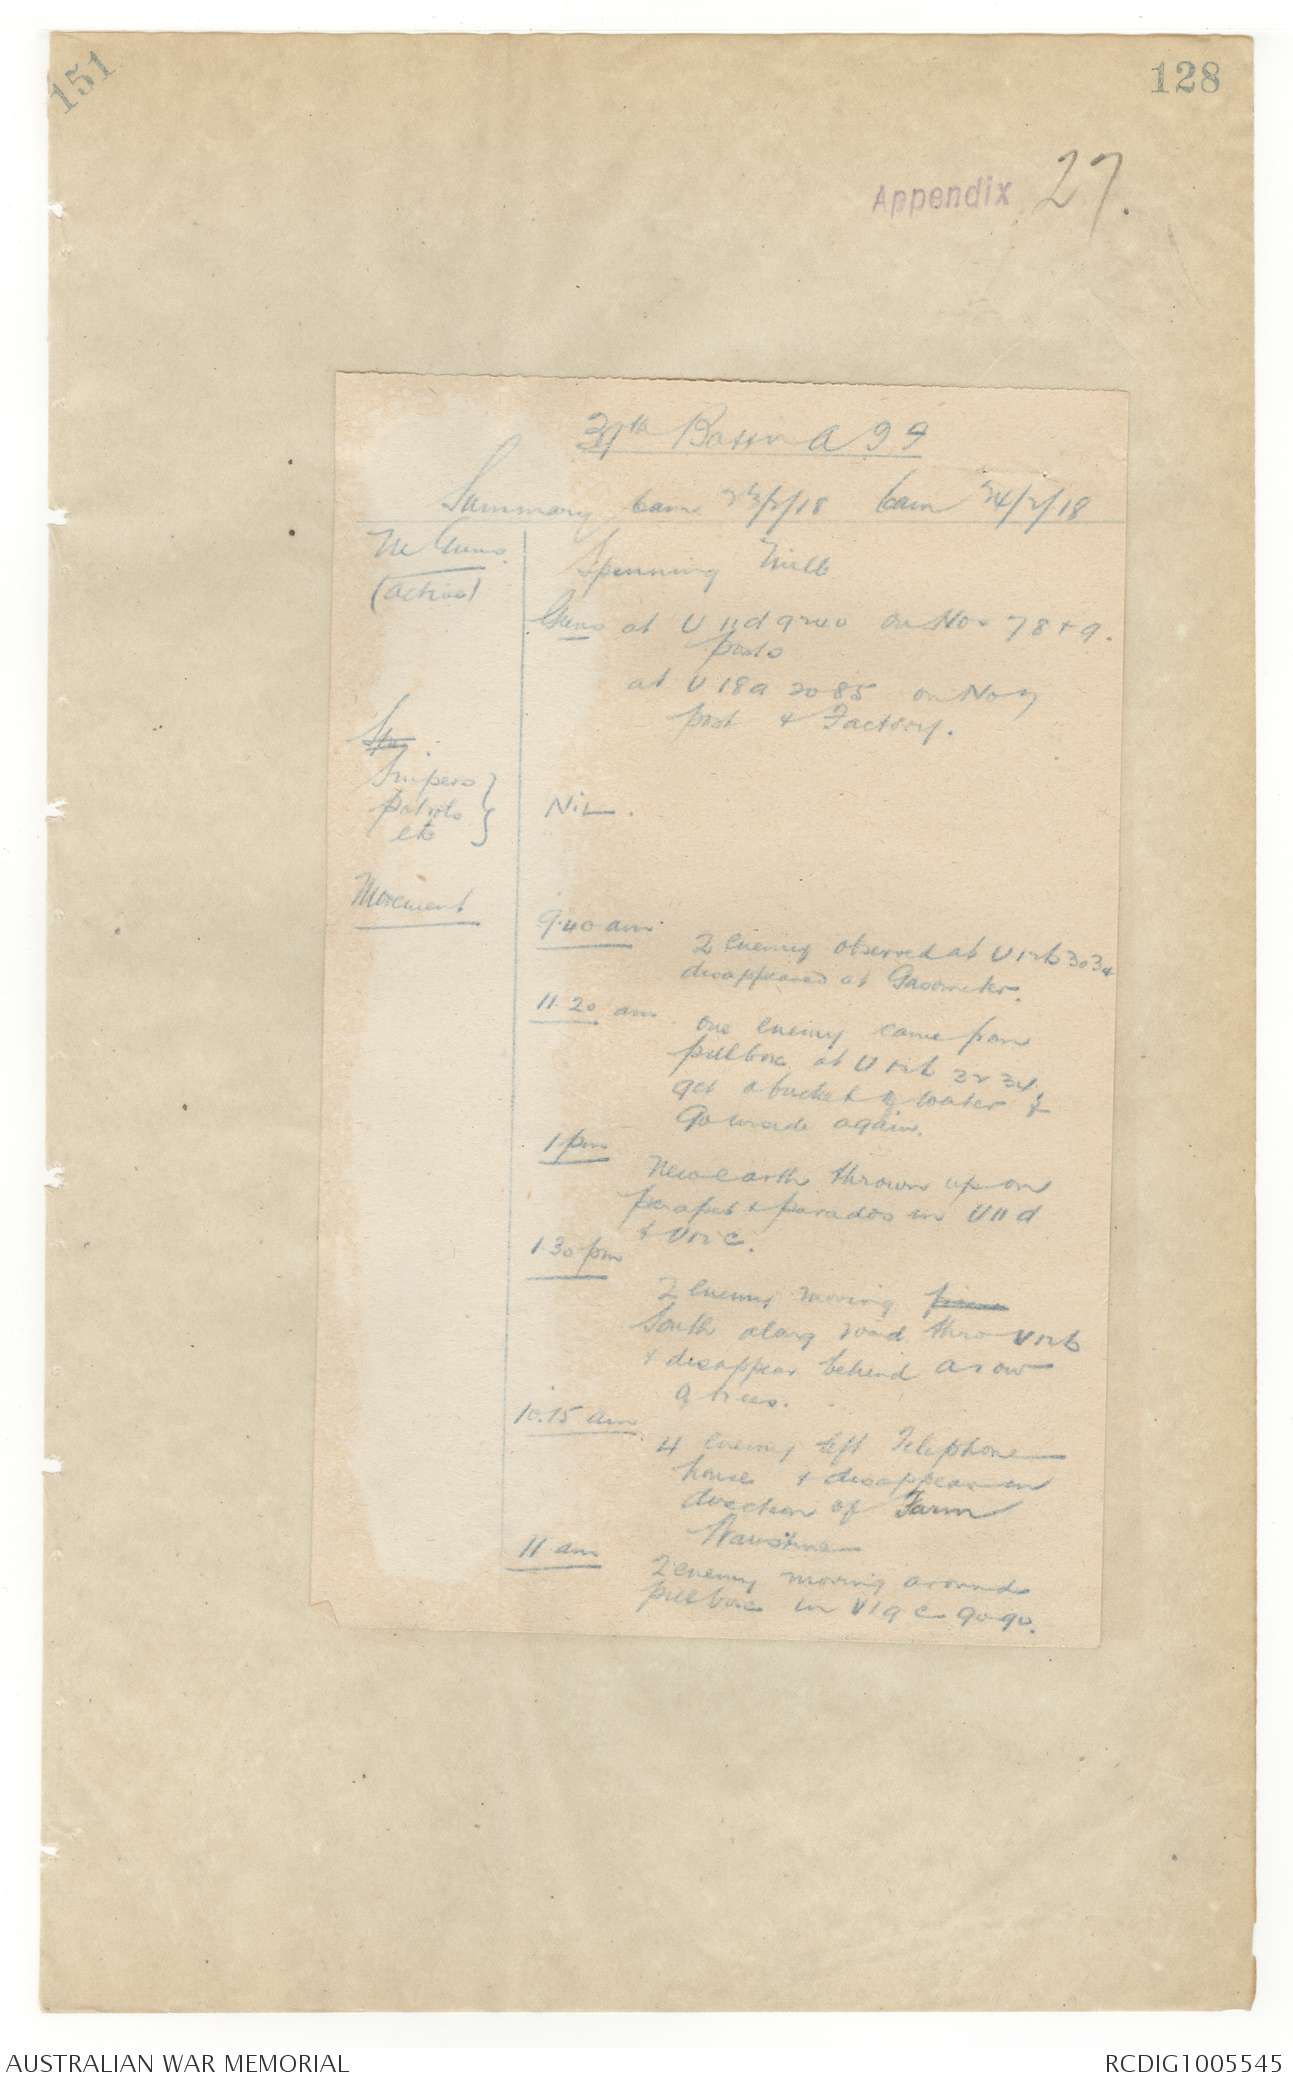 151
128
Appendix 27.
37th Battn A 99
Summary 6am 23/2/18 6am 24/2/18
M Guns.
(active)
Spinning Mill
Guns at U 11 d 9240 on Nos 7 8 + 9.
posts
at U 18a 2085 on No 7
post + Factory.
Sn :
Snipers
patrols
etc
NiL.
Movement
9.40 am.
2 Enemy observed at U 12 b 3034
disappeared at Gasometer.
11.20 am
one enemy came from
pillbox at U 12 b 3234
get a bucket of water &
go inside again.
1 pm
New earth thrown up on
parapet & parados in U 11 d
& U 12 c.
1.30 pm
2 Enemy moving
South along road thro U 12 b
& disappear behind a row
of trees.
10.15 am
4 Enemy left Telephone
house & disappear in
direction of Farm
11 am
2 enemy moving around
pillbox in V 19 c 90.90.
AUSTRALIAN WAR MEMORIAL
RCDIG1005545